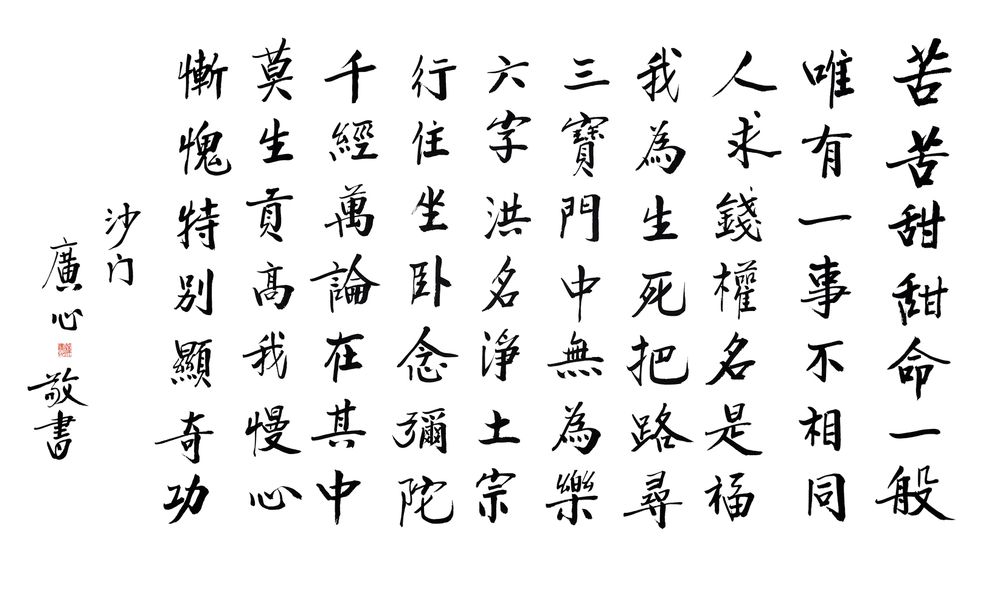 苦苦甜甜命一般
唯有一事不相同
人求錢權名是福
我為生死把路尋
三寶門中無為樂
六字洪名淨土宗
行住坐卧念彌陀
千經萬論在其中
莫生貢高我慢心
慚愧特别顯奇功
沙门
廣心
敬書